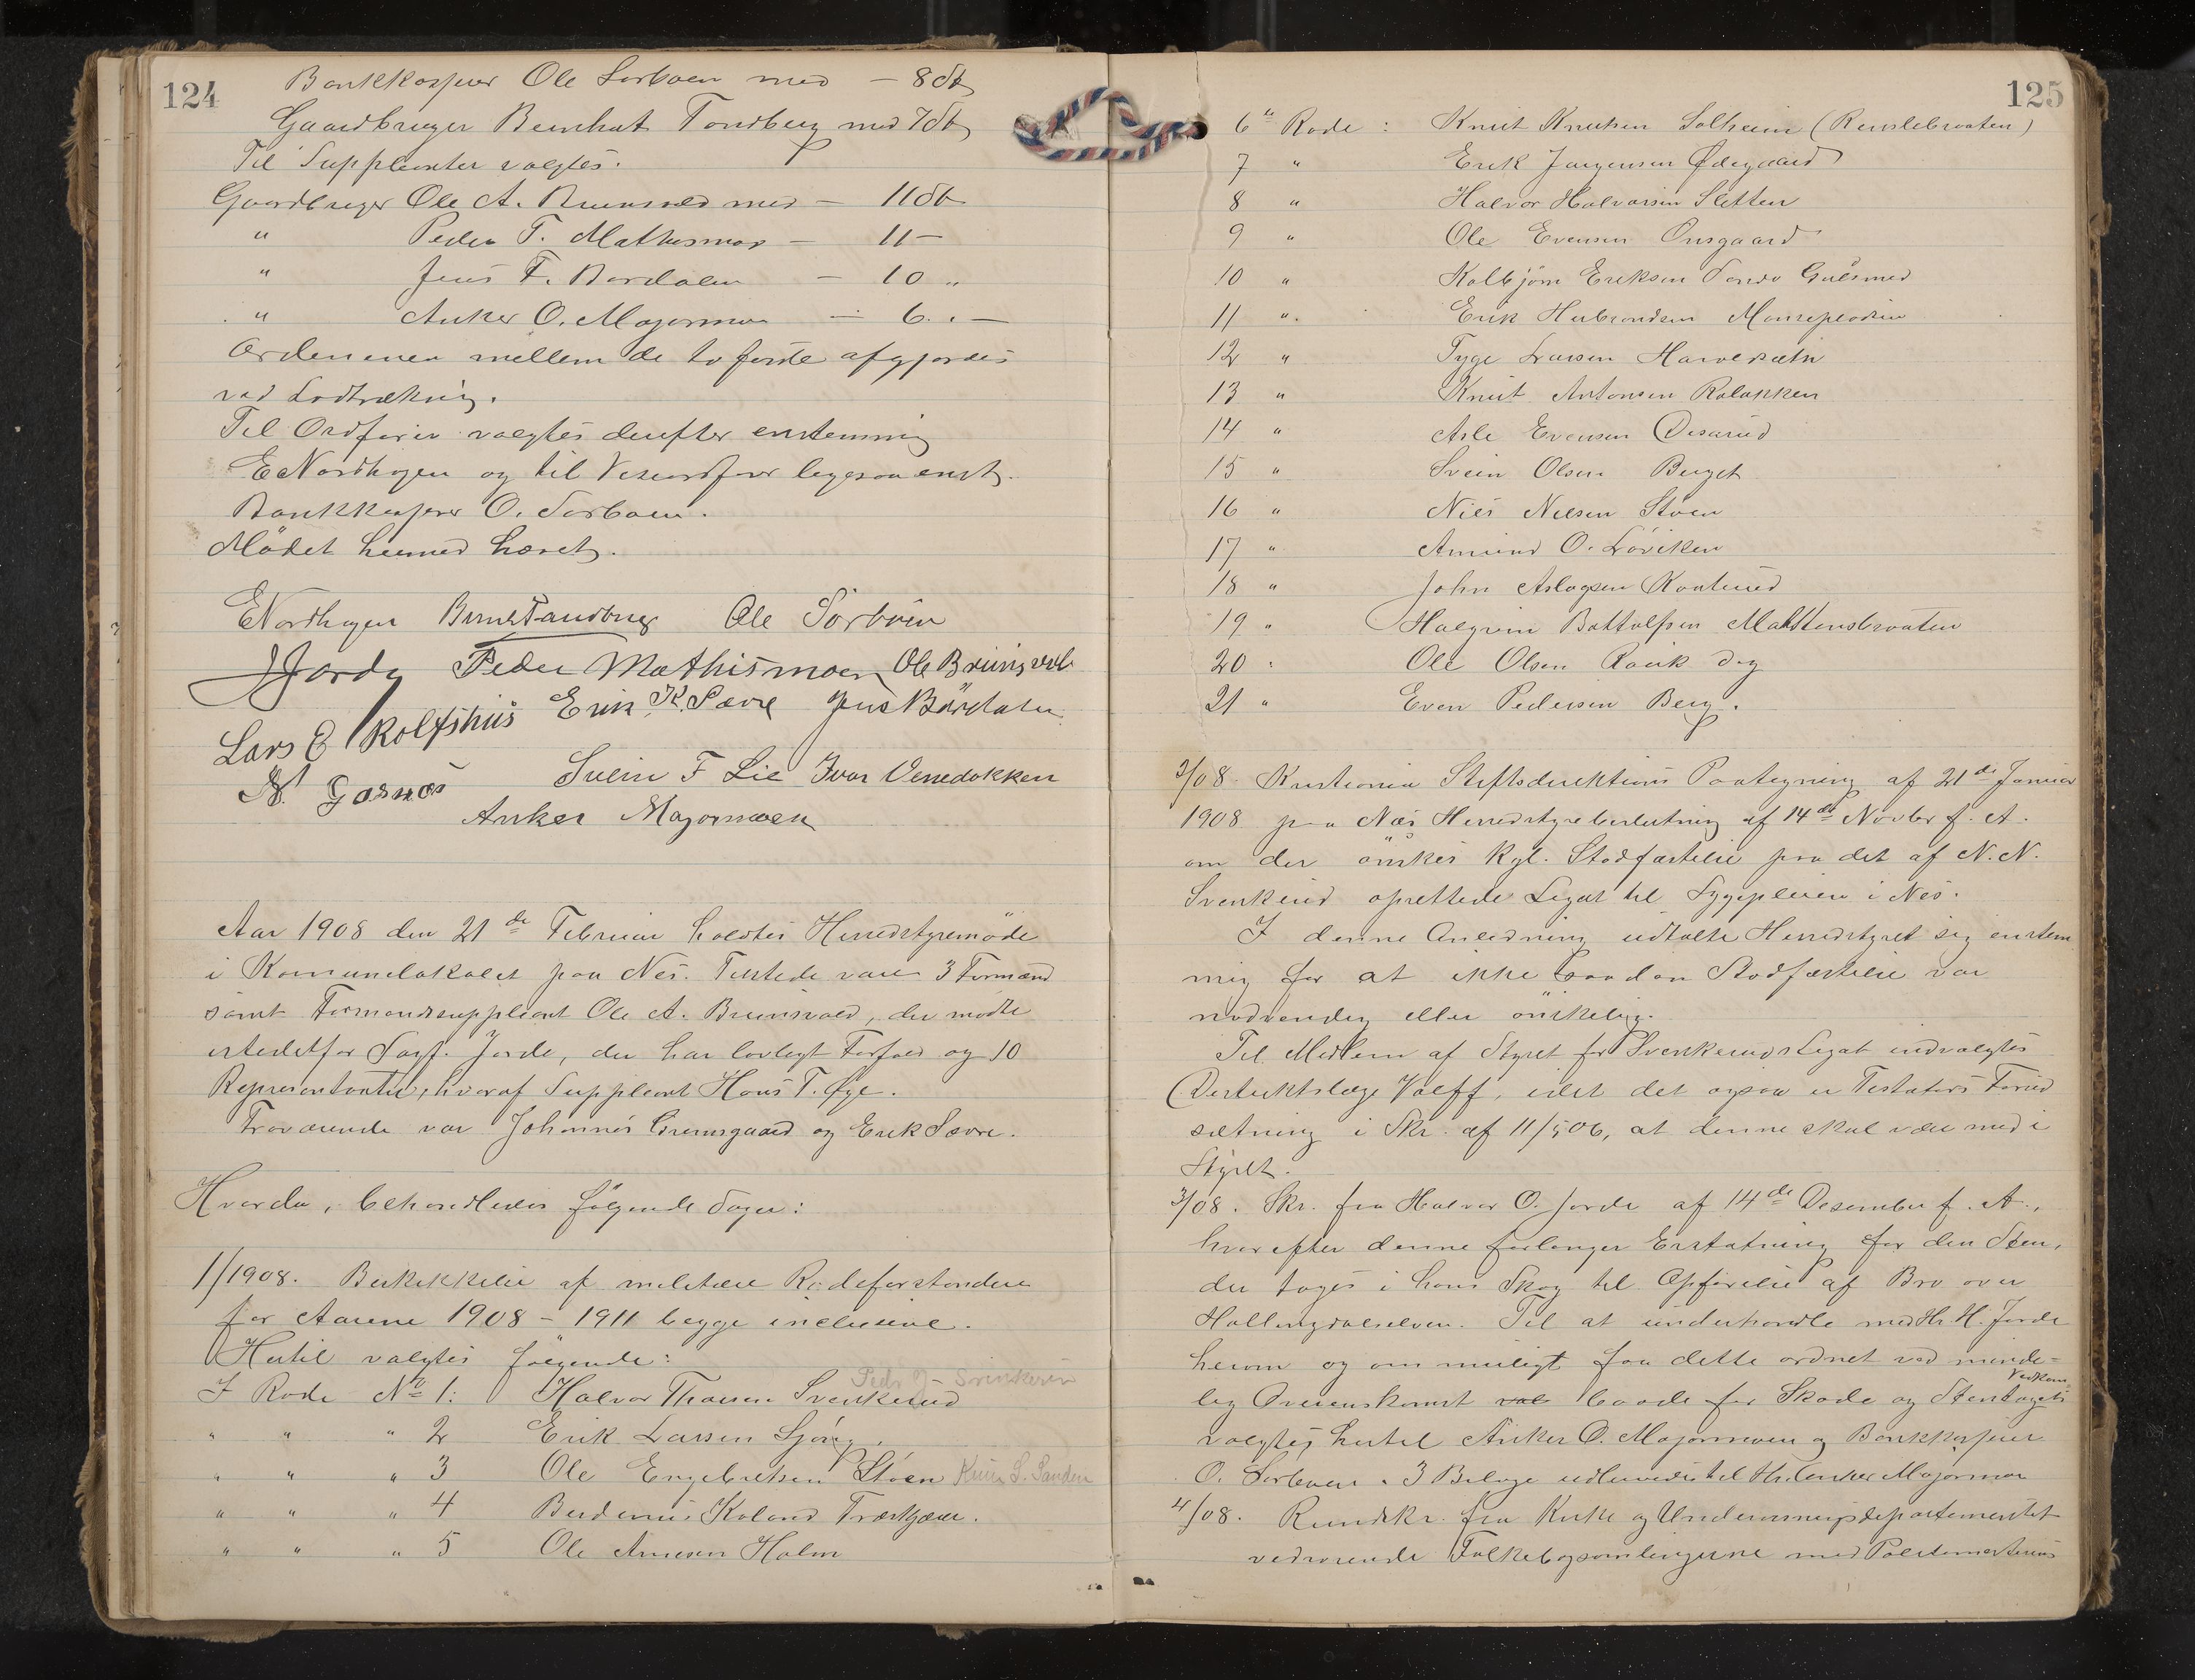 124
Bankkasserer Ole Sørbøen med — 8 St
Gaardbruger Bernhart Tandberg med 7 St
Til Suppleanter valgtes:
Gaardbruger Ole A. Bruunsvold med — 11 St
" Peder T. Mathismoen — 11 —
" Jens T. Bærdalen — 10 "
" Anker O. Majormoen — 6 " —
Ordenenen mellem de to første afgjordes
ved Lodtrækning.
Til Ordfører valgtes derefter enstemmig
E Nordhagen og til Viseordfører ligesaa enst.
Bankkasserer O. Sørbøen.
Mödet hermed hævet.
E Nordhagen Bernt Tandberg Ole Sörböen
Jorde Peder Mathismoen Ole Bruunsvold
Lars E Rolfshus Erik K. Sævre Jens Bärdalen
N. Gosnæs Svein F Lie Ivar Venedokken
Anker Majormoen
Aar 1908 den 21de Februar holdtes Herredstyremöde
i Komunelokalet paa Nes. Tilstede vare 3 Formænd
samt Formandssuppleant Ole A. Bruunsvold, der mødte
istedetfor Sagf. Jorde, der har lovligt Forfald og 10
Representanter, hvoraf Suppleant Hans T. Øye.
Fraværende var Johannes Grimsgaard og Erik Sævre.
Hvorda, behandledes følgende Sager:
1/1908. Beskikkelse af militære Rodeforstandere
for Aarene 1908 – 1911 begge inclusive.
Hertil valgtes følgende:
Peder J Svenkerud
I Rode No 1: Halvor Thoresen Svenkerud
" " " 2 Erik Larsen Ljøng
" " " 3 Ole Engebretsen Støen Knut S. Sanden
" " " 4 Berdinus Koland Trøstgaar.
" " " 5 Ole Arnesen Holm
125
6te Rode: Knut Knutsen Solheim (Renslebraaten)
7 " Erik Jørgensen Ødegaard
8 " Halvor Halvorsen Sletten
9 " Ole Evensen Onsgaard
10 " Kolbjörn Eriksen Sando Gulsmed
11 " Erik Herbrandsen
12 " Tyge Larsen
13 " Knut Antonsen Rolokken
14 " Asle Evensen Disarud
15 " Svein Olsen Berget
16 " Nils Nilsen Støen
17 " Amund O. Löviken
18 " John Aslagsen Kantlerud
19 " Halgrim Bottolfsen Malstensbraaten
20 " Ole Olsen Rauk dy
21 " Even Pedersen Berg.
2/08. Kristiania Stiftsdirektions Paategning af 21de Januar
1908 paa Næs Herredstyrebeslutning af 14de Novbr f. A.
om der önskes Kgl. Stadfæstelse paa det af N. N.
Svenkerud oprettede Legat til Sygepleien i Nes.
I denne Anledning udtalte Herredstyret sig enstem
mig for at ikke saadan Stadfæstelse var
nødvendig eller önskelig.
Til Medlem af Styret for Svenkeruds Legat indvalgtes
Distriktslæge Wolff, idet det ogsaa er Testators Forud
sætning i Skr. af 11/5 06, at denne skal være med i
Styret.
3/08. Skr. fra Halvor O. Jorde af 14de Desember f. A.,
hvorefter denne forlanger Erstatning for den Sten,
der toges i hans Skog til Opførelse af Bro over
Hallingdalselven. Til at underhandle med Hr. H. Jorde
herom og om muligt faa dette ordnet ved minde=
lig Overenskomst baade for Skade og Stentaget Vedkom.
valgtes hertil Anker O. Majormoen og Bankkasserer
O. Sørbøen. 3 Bilage udleveredes til Hr. Anker Majormoen
4/08. Rundskr. fra Kirke og Undervisningsdepartementet
vedrørende Folkebogsamlingerne med